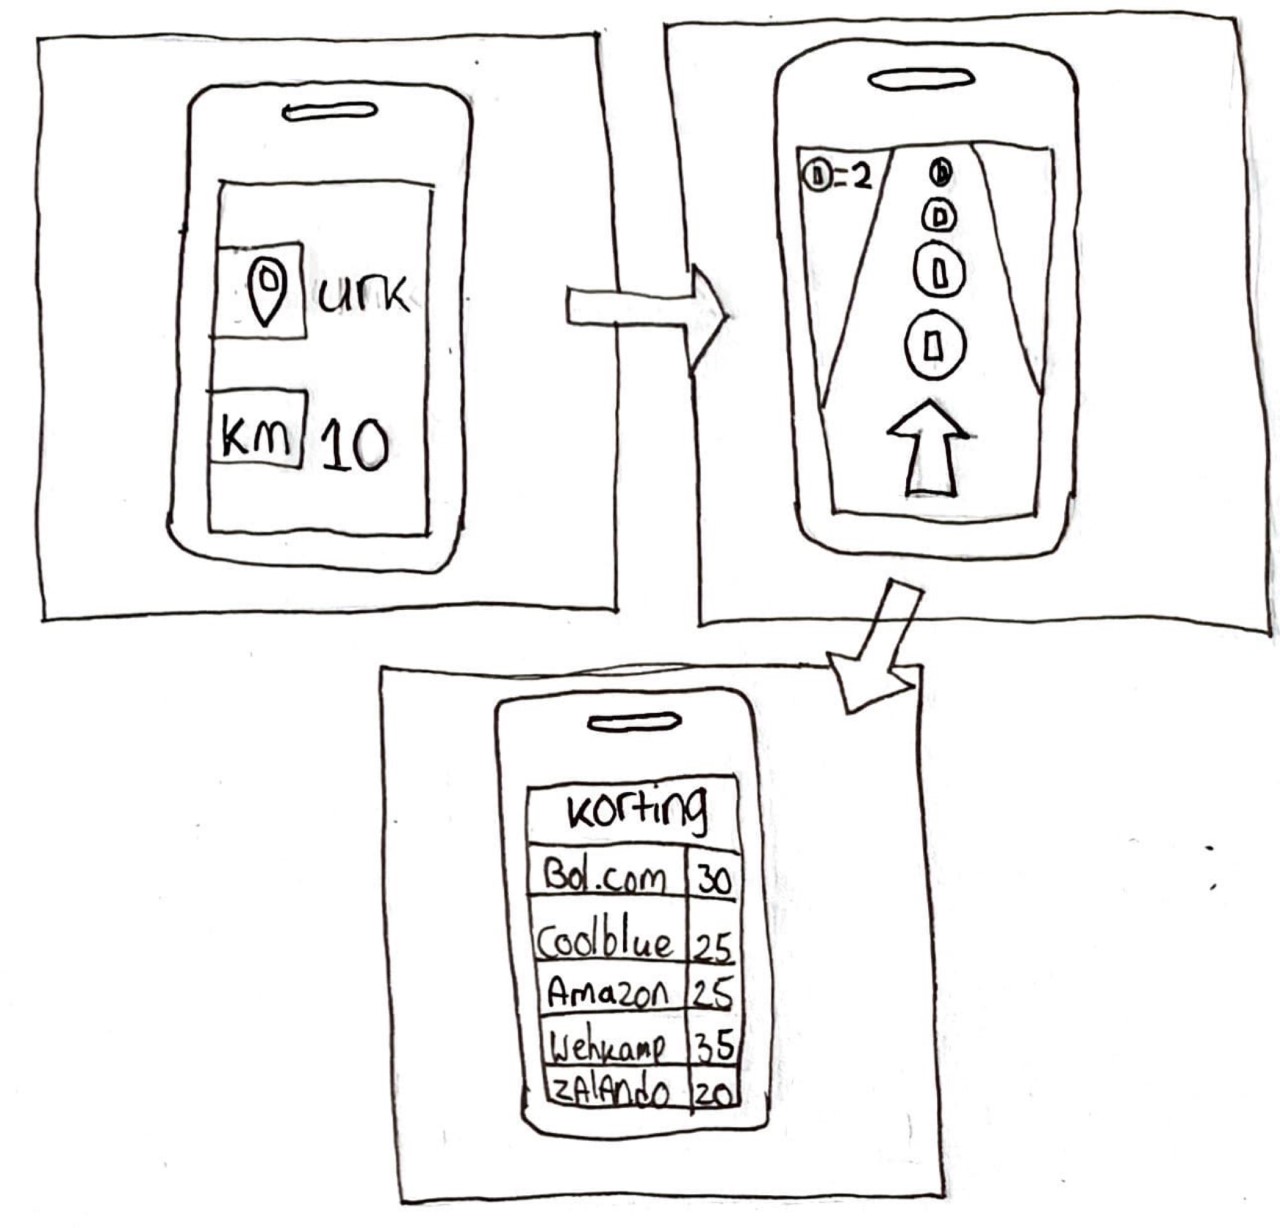 urk
km 10
=2
korting
Bol.com 30
Coolblue 25
Amazon 25
Wehkamp 35
ZAlANdo 20